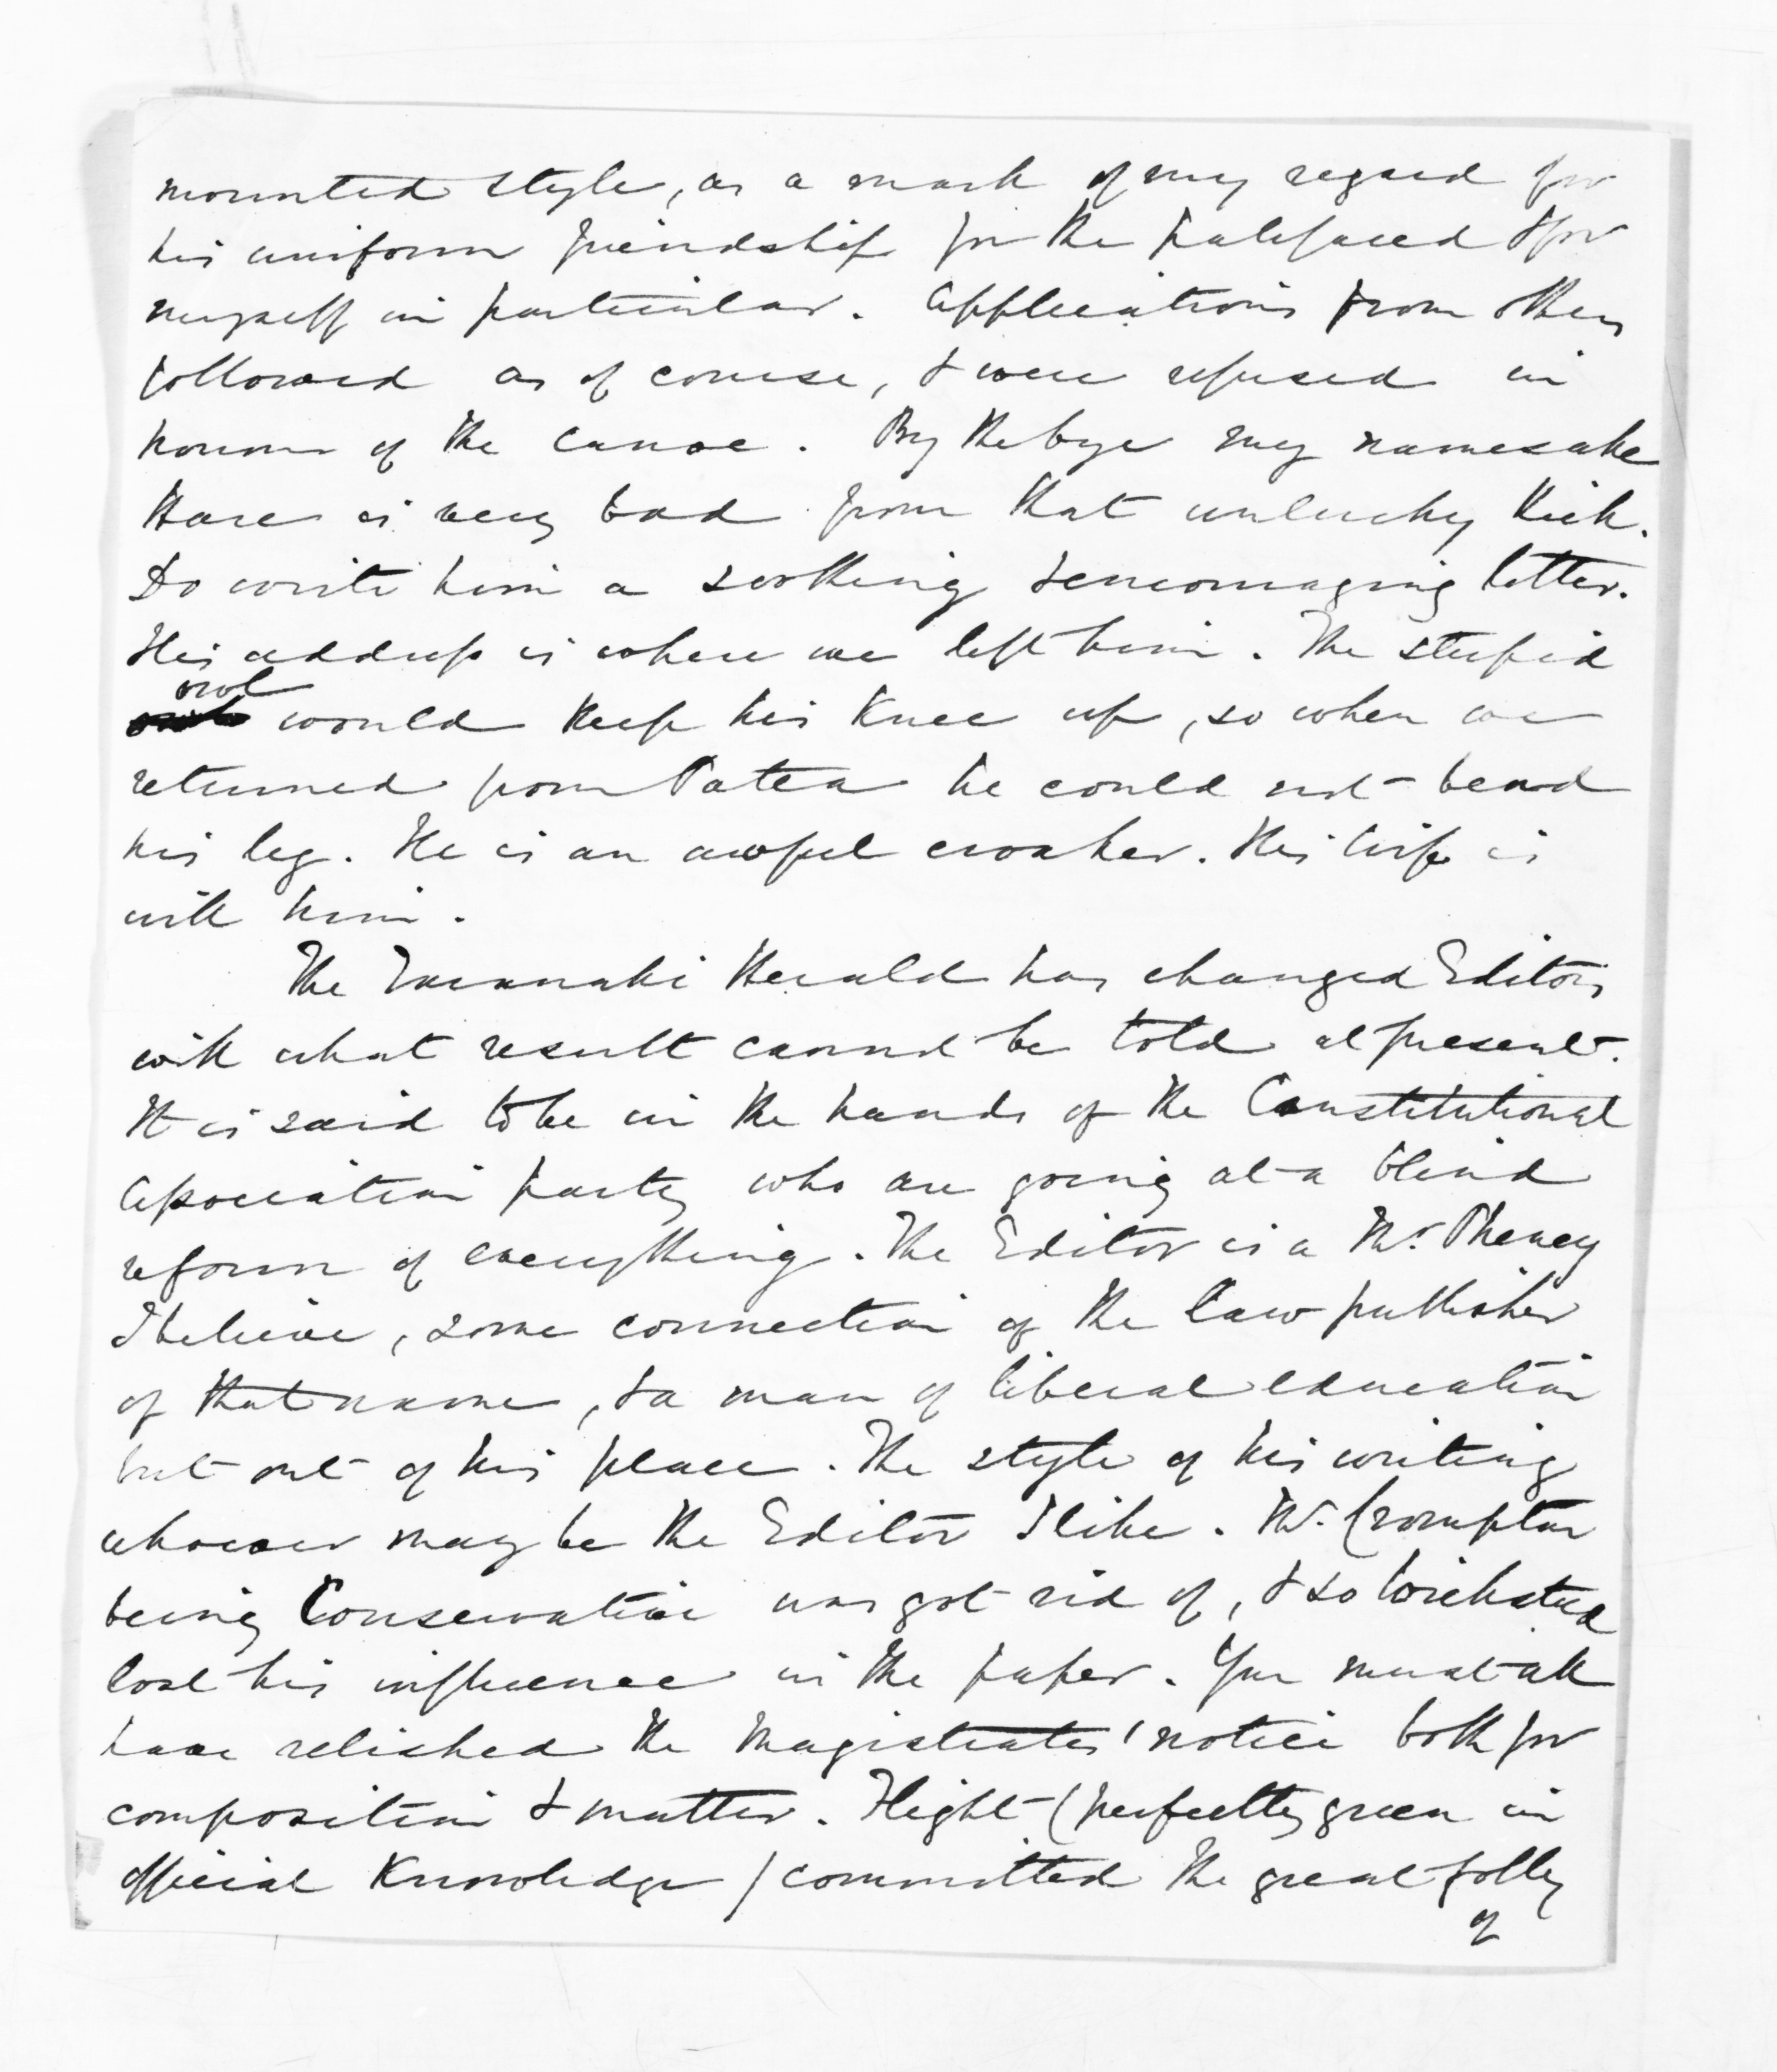 mounted style, as a mark of my regard for
his uniform friendship for the palefaced & for
myself in particular. Applications from others
followed as of course, & were refused in
honour of the canoe. By the bye my namesake
Hare is very bad from that unlucky kick.
Do write him a soothing & encouraging letter.
His address is where we left him. The stupid
owl would keep his knee up, so when we
returned from Patea he could not bend
his leg. He is an awful croaker. His wife is
with him.
The Taranaki Herald has changed Editors
with what result cannot be told at present.
It is said to be in the hands of the Constitutional
Association party who are going at a blind
reform of everything. The Editor is a Mr. Pheney
I believe, some connection of the law publisher
of that name, & a man of liberal education
but out of his place. The style of his writing
whoever may be the Editor I like. Mr. Crompton
being Conservative was got rid of, & so Wicksteed
lost his influence in the paper. You must all
have relished the Magistrates' notice both for
composition & matter. Flight (perfectly green in
official knowledge) committed the great folly
of